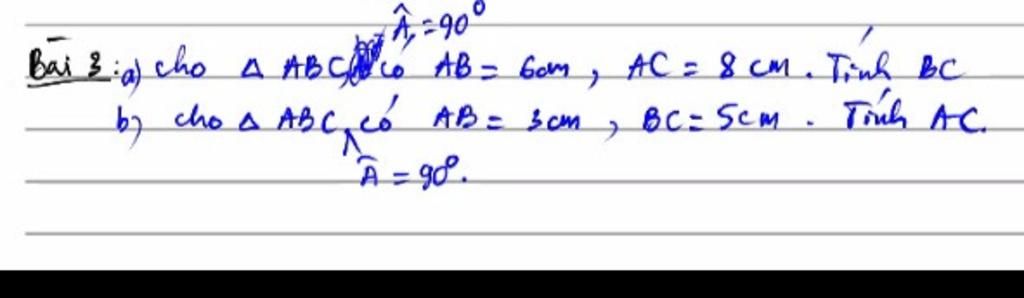 Â = 90°
Bài 3: a) cho Δ ABC, có AB = 6cm, AC = 8 cm. Tính BC
b) cho Δ ABC, có AB = 3cm, BC = 5cm. Tính AC.
Â = 90°.